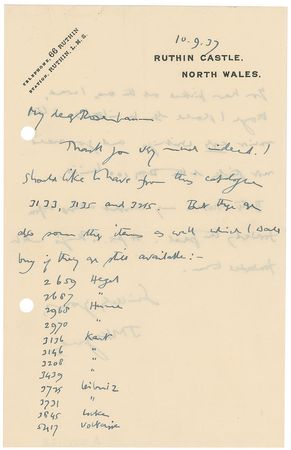 TELEPHONE, 66 RUTHIN
STATION, RUTHIN, L.M.S.
10.9.37
RUTHIN CASTLE,
NORTH WALES.
My dear Rosenbaum
Thank you very much indeed. I
should like to have from this catalogue
3133, 3135 and 3215. But there are
also some other items as well which I would
buy if they are still available :-
2659 Hegel
2687 "
2968 Hume
2970 "
3136 Kant
3146 "
3208 "
3439 "
3725 Leibniz
3731 "
3845 Locke
5417 Voltaire